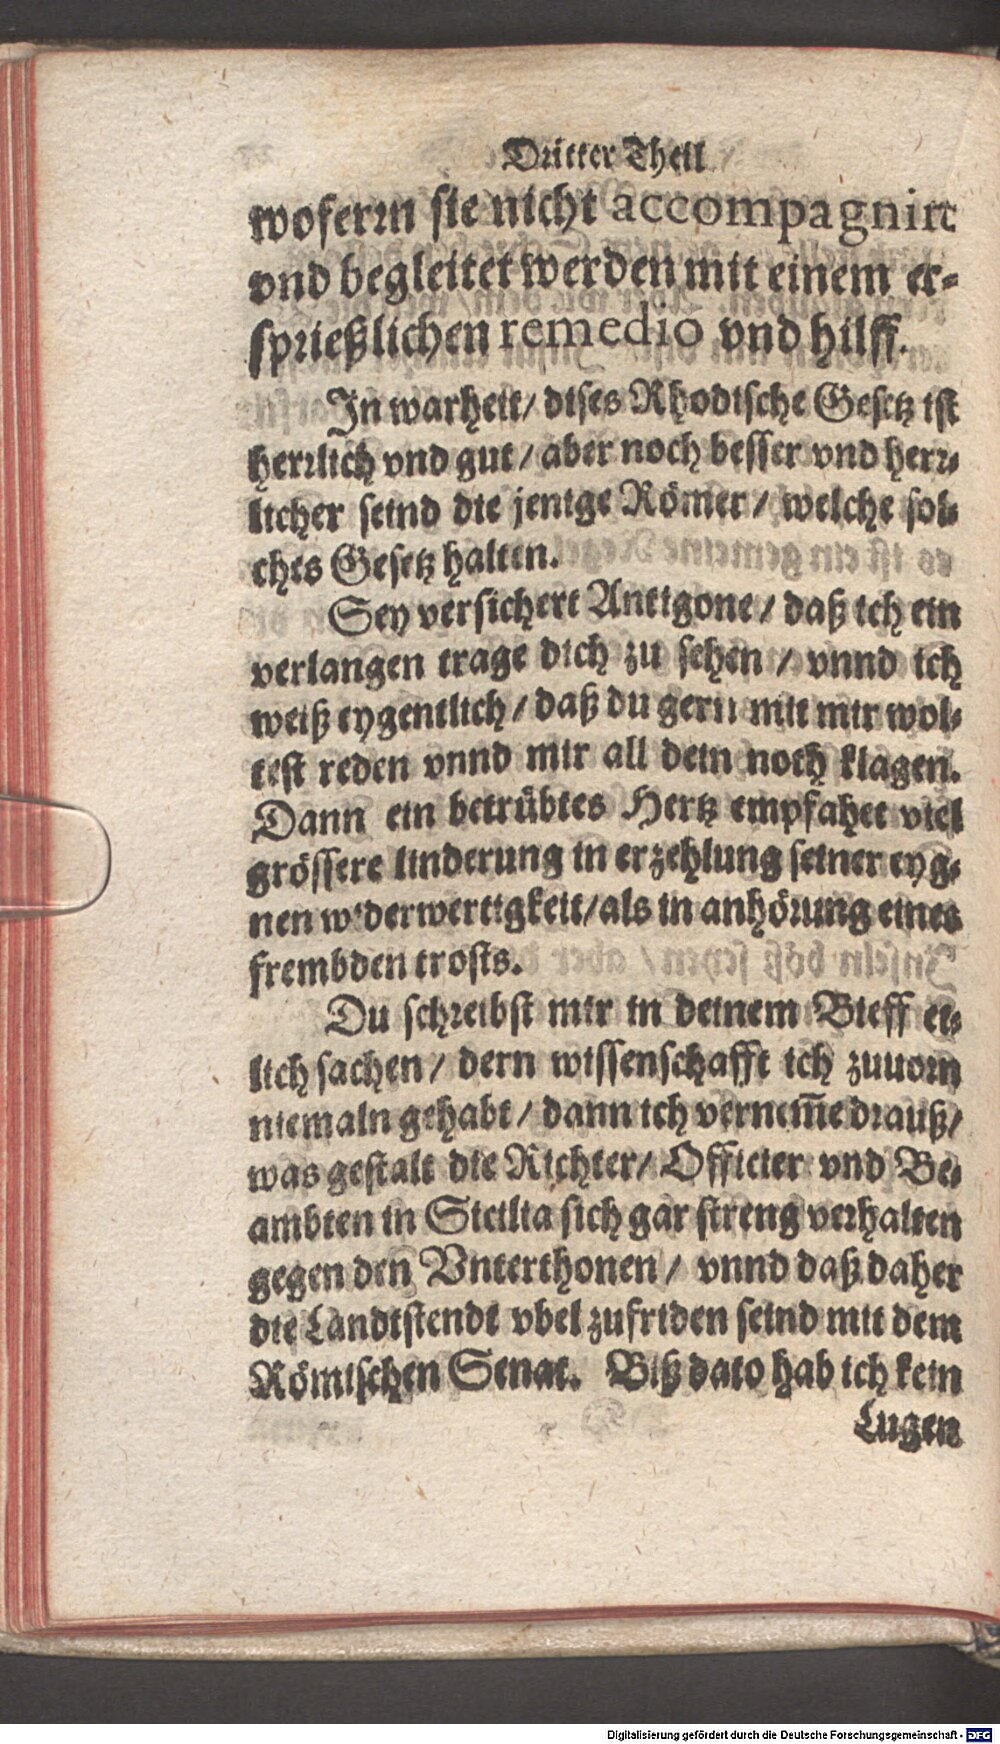 Dritter Theil
woferrn sie nicht accompagnirt
vnd begleitet werden mit einem er-
sprießlichen remedio vnd hilff.
In warheit/ dises Rhodische Gesetz ist
herrlich vnd gut/ aber noch besser vnd herr-
licher seind die jenige Römer/ welche sol-
ches Gesetz halten.
Sey versichert Antigone/ daß ich ein
verlangen trage dich zu sehen/ vnnd ich
weiß eygentlich/ daß du gern mit mir wol-
test reden vnnd mir all dein noth klagen.
Dann ein betrübtes Hertz empfahet viel
grössere linderung in erzehlung seiner eyg-
nen widerwertigkeit/ als in anhörung eines
frembden trosts.
Du schreibst mir in deinem Bieff et-
lich sachen/ dern wissenschafft ich zuuorn
niemaln gehabt/ dann ich vernem̅e drauß/
was gestalt die Richter/ Officier vnd Be-
ambten in Sicilia sich gar streng verhalten
gegen den Vnterthonen/ vnnd daß daher
die Landtstendt vbel zufriden seind mit dem
Römischen Senat. Biß dato hab ich kein
Lugen
Digitalisierung gefördert durch die Deutsche Forschungsgemeinschaft - DFG